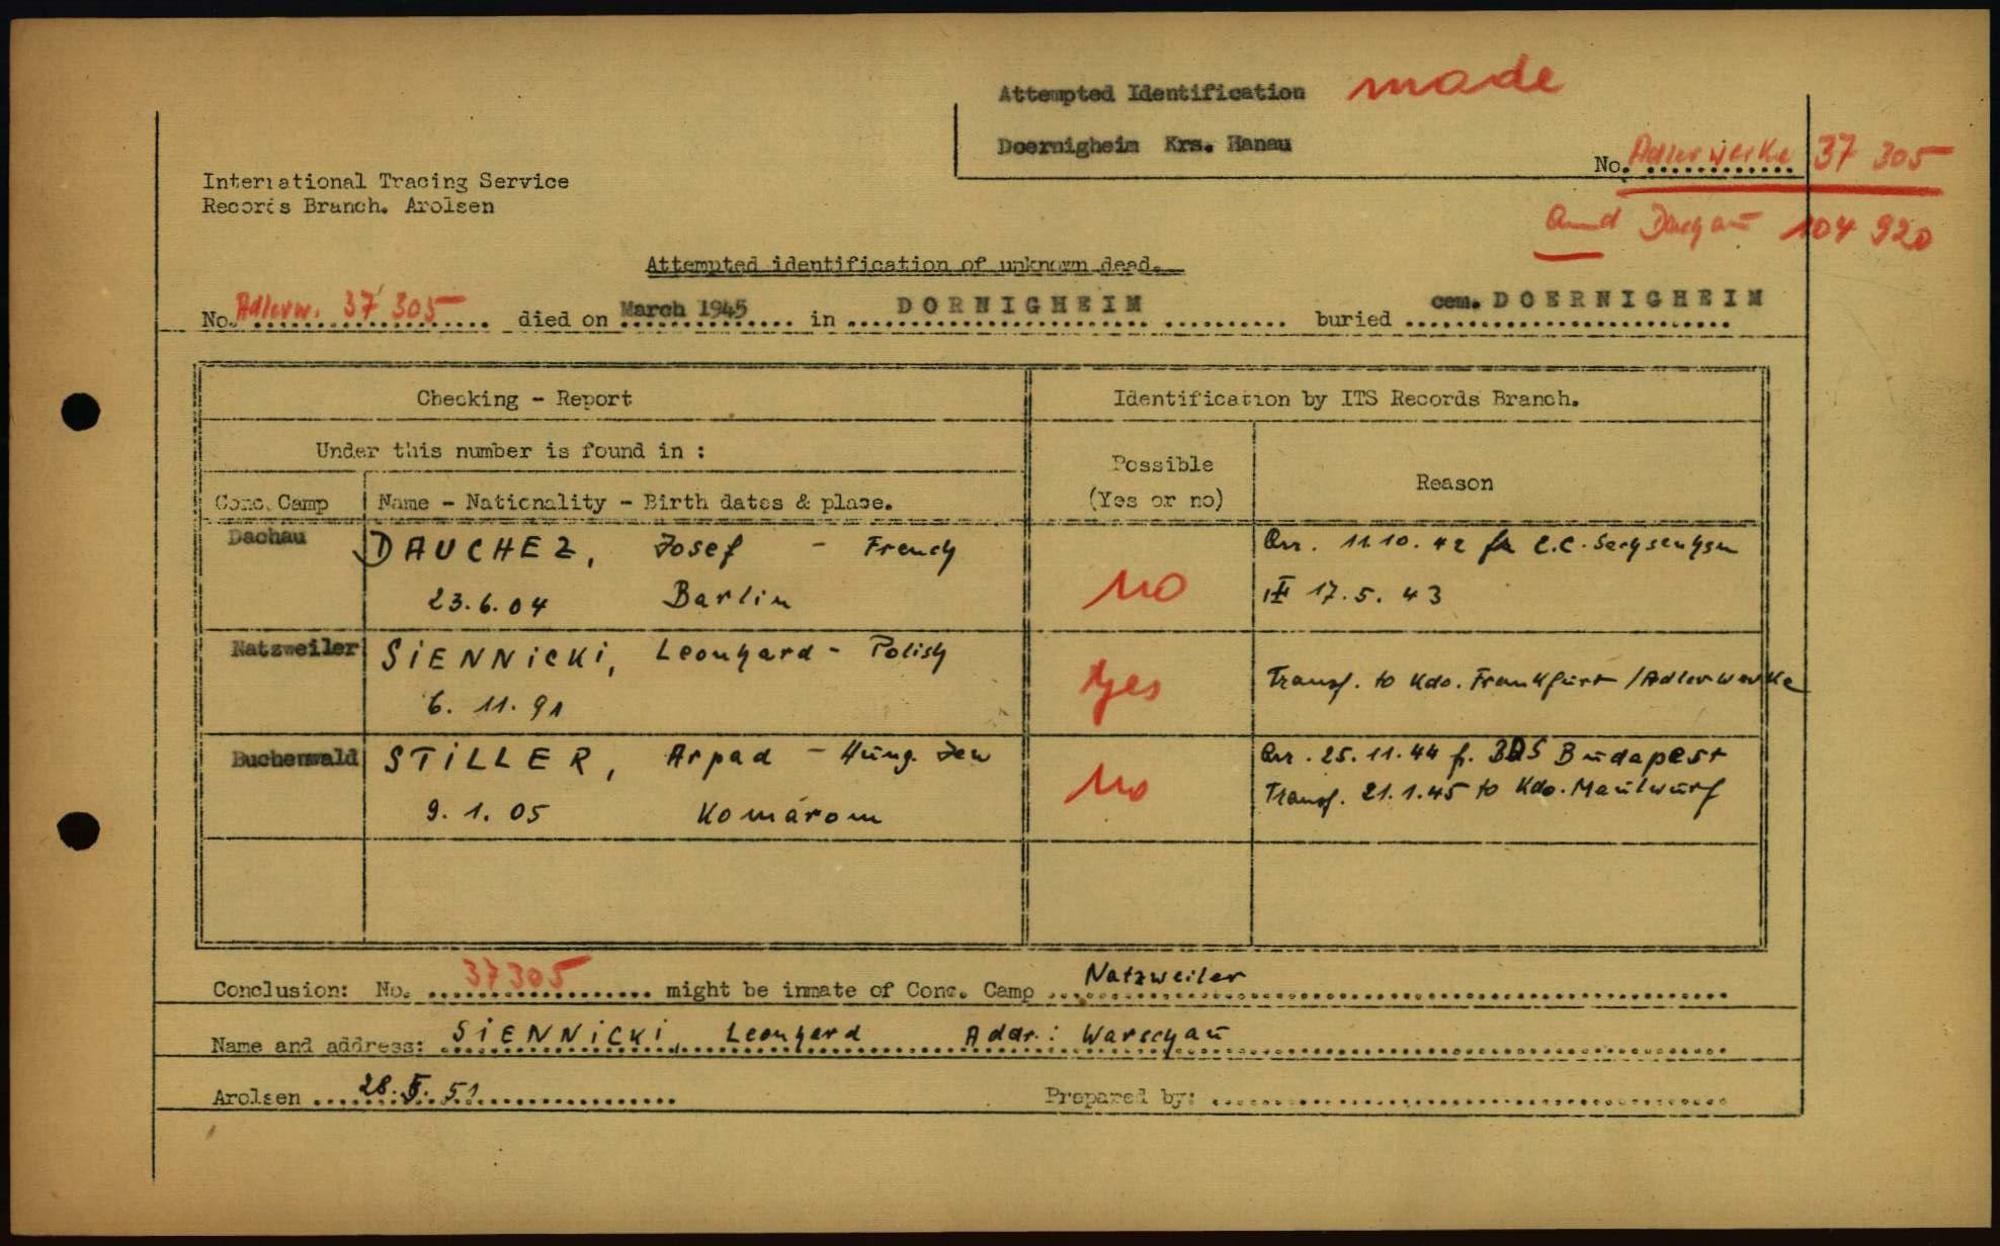 Attempted Identification made
Doernigheim Krs. Hanau
No. Adlerwerke 37 305
International Tracing Service
Records Branch. Arolsen
and Dachau 104 920
Attempted identification of unknown dead.
No. Adlerw. 37 305 died on March 1945 in DORNIGHEIM buried cem. DOERNIGHEIM
Checking - Report Identification by ITS Records Branch.
Under this number is found in :
Possible
(Yes or no)
Reason
Conc. Camp Name - Nationality - Birth dates & place.
Dachau DAUCHEZ, Josef - French no Arr. 11.10.42 fr C.C. Sachsenhsn
23.6.04 Barlin 17.5.43
Natzweiler SIENNICKI, Leonhard - Polish Yes Transf. to Kdo. Frankfurt /Adlerwerke
6. 11. 91
Buchenwald STILLER, Arpad - Hung. Jew no Arr. 25.11.44 f. BDS Budapest
9. 1. 05 Komárom Transf. 21.1.45 to Kdo. Maulwurf
Conclusion: No. 37305 might be inmate of Conc. Camp Natzweiler
Name and address: SIENNICKI, Leonhard Addr.: Warschau
Arolsen 28. 5. 51 Prepared by: